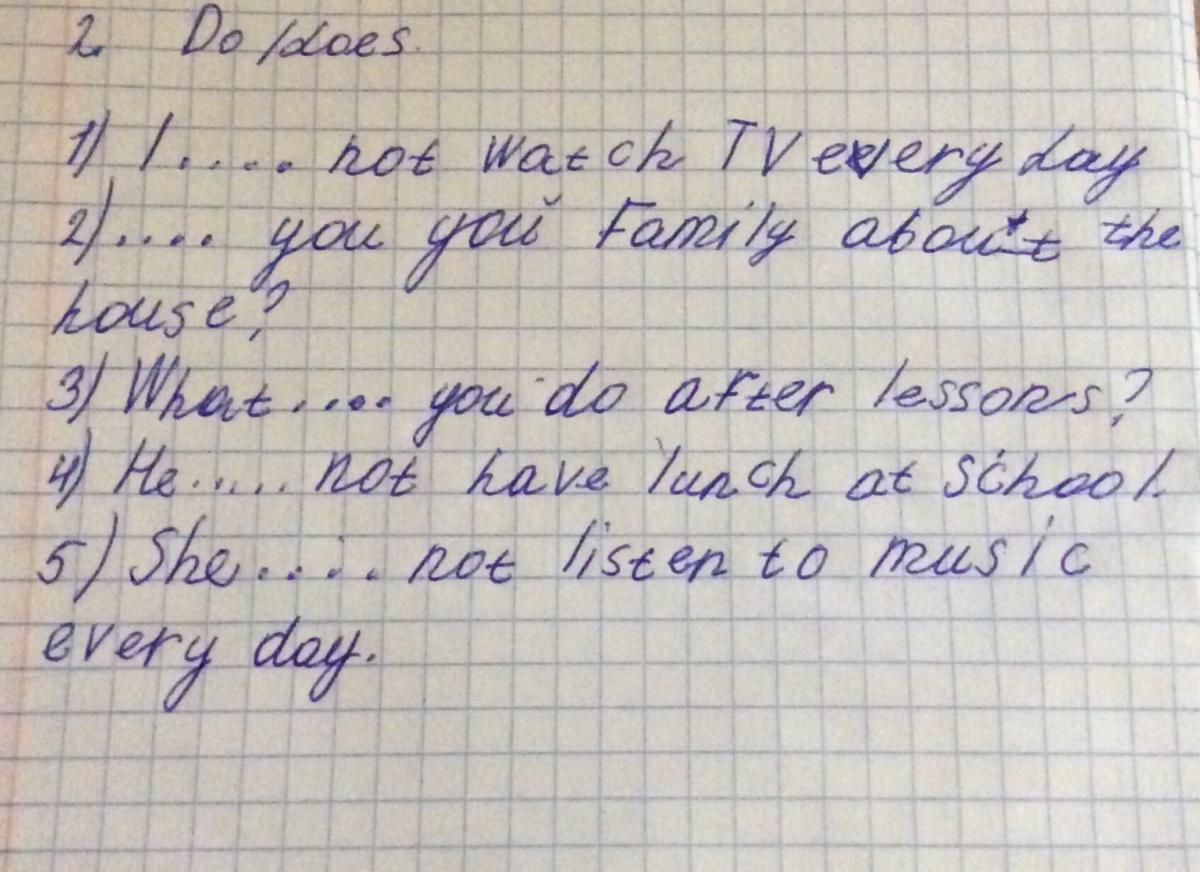 2. Do/does.
1) I .... not watch TV every day
2) .... you you Family about the
house?
3) What .... you do after lessons?
4) He ..... not have lunch at school.
5) She ..... not listen to music
every day.